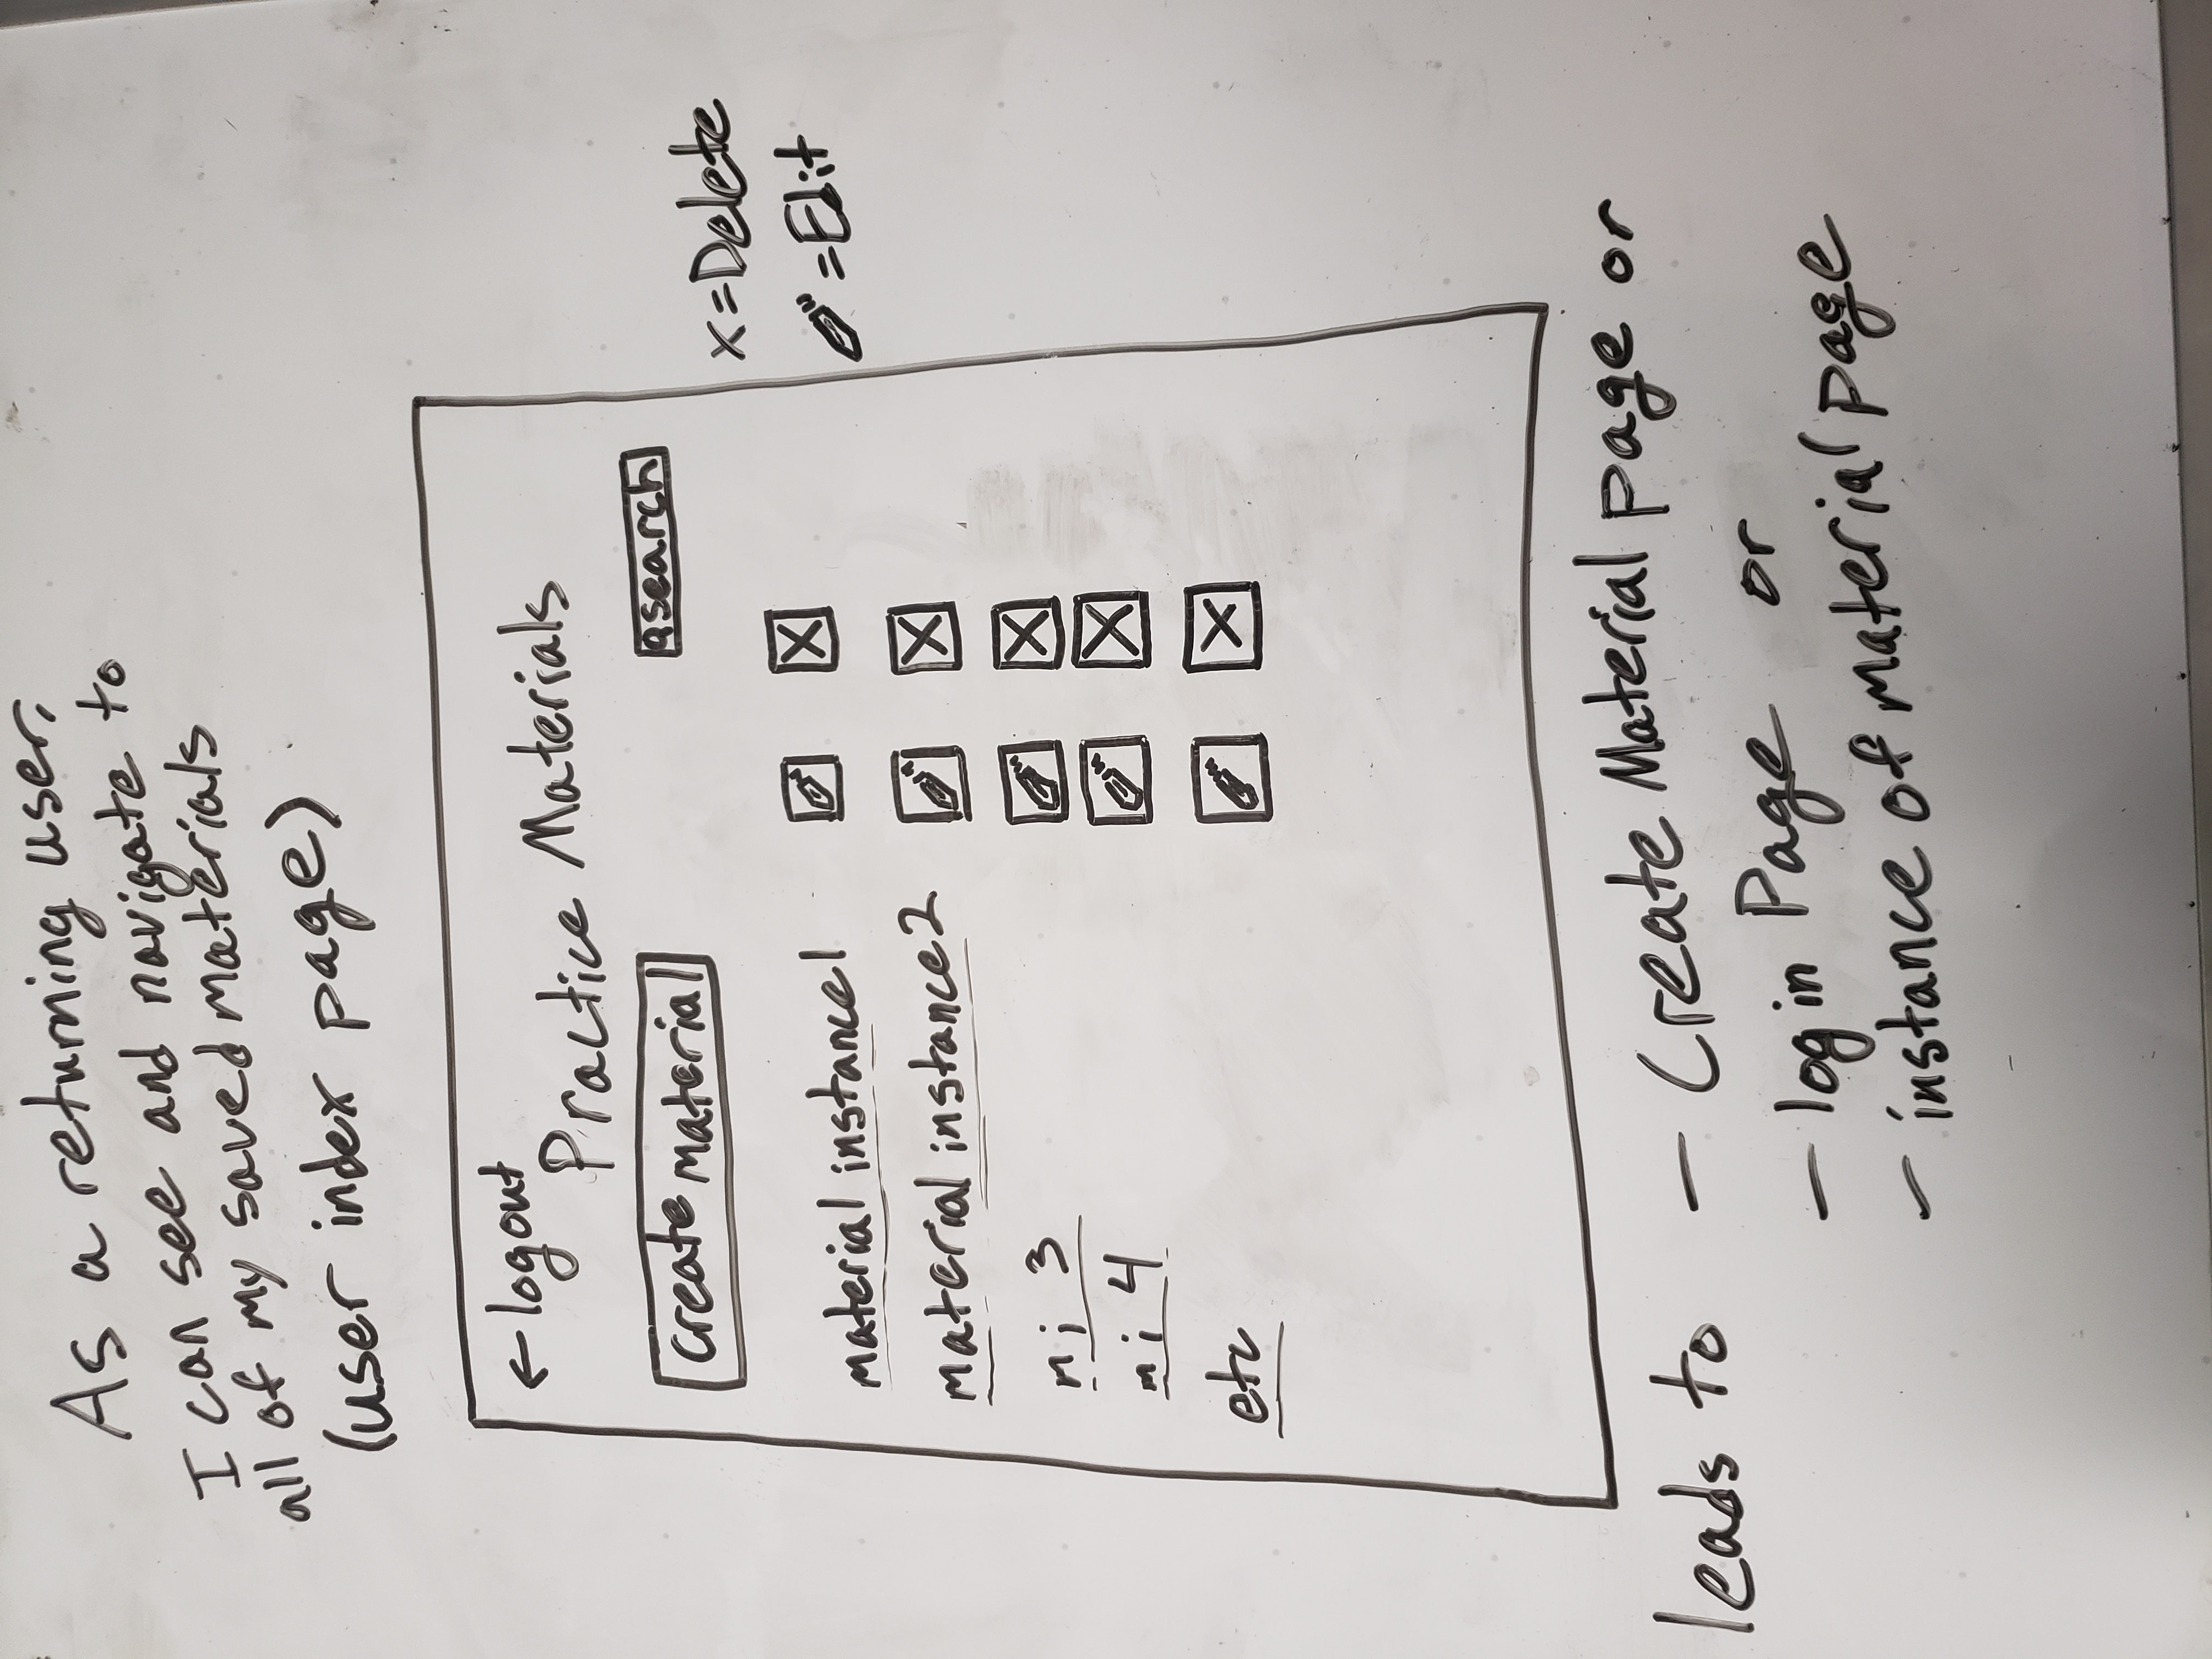 As a returning user,
I can see and navigate to
all of my saved materials
(user index page)
← logout
Practice Materials
create material
search
x = Delete
= Edit
material instance 1
X
material instance 2
X
mi 3
X
mi 4
X
etc
X
leads to - Create Material page or
- login Page or
- instance of material page